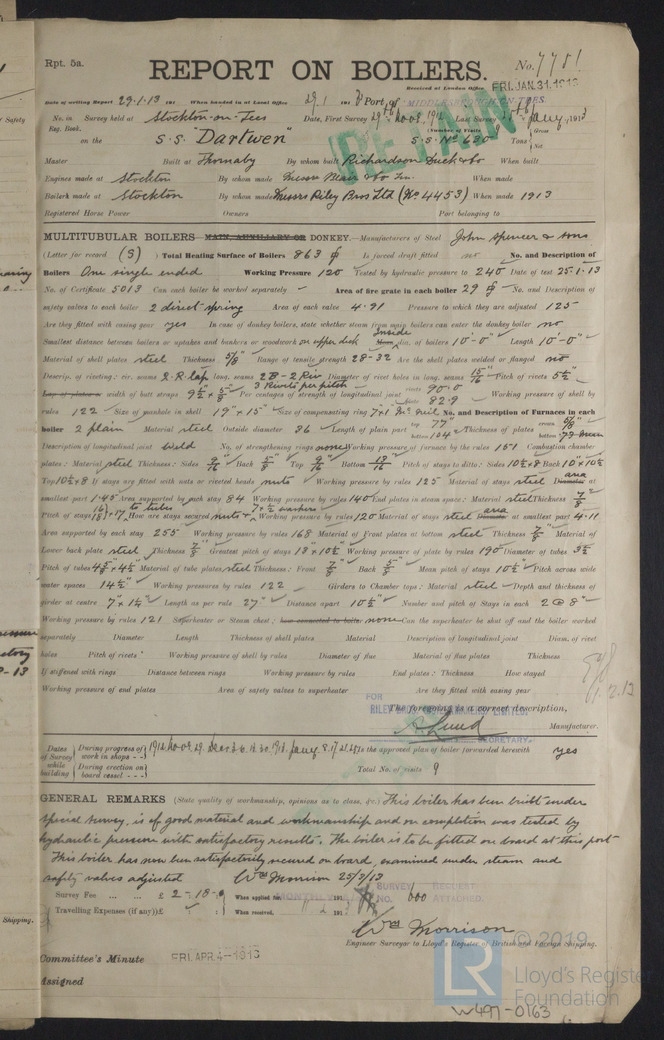 Rpt. 5a.
No. 7781
REPORT ON BOILERS.
Received at London Office FRI. JAN. 31. 1913
Date of writing Report 29.1.13 191 When handed in at Local Office 29.1 1913 Port of MIDDLESBROUGH-ON-TEES
No. in Reg. Book. Survey held at Stockton-on-Tees Date, First Survey 29th Nov. 1912 Last Survey 1913
(Number of Visits 9
on the S.S. "Dartwen" S.S. No 630 Tons Gross Net
Master Built at Thornaby By whom built Richardson Duck & Co When built
Engines made at Stockton By whom made Messrs Blair & Co Lim. When made
Boilers made at Stockton By whom made Messrs Riley Bros Ltd (No 4453) When made 1913
Registered Horse Power Owners Port belonging to
MULTITUBULAR BOILERS MAIN, AUXILIARY OR DONKEY.—Manufacturers of Steel John Spencer & Sons
(Letter for record (S) ) Total Heating Surface of Boilers 863 Is forced draft fitted no No. and Description of
Boilers One single ended Working Pressure 120 Tested by hydraulic pressure to 240 Date of test 25.1.13
No. of Certificate 5013 Can each boiler be worked separately – Area of fire grate in each boiler 29 No. and Description of
safety valves to each boiler 2 direct spring Area of each valve 4.91 Pressure to which they are adjusted 125
Are they fitted with easing gear yes In case of donkey boilers, state whether steam from main boilers can enter the donkey boiler no
Smallest distance between boilers or uptakes and bunkers or woodwork on upper deck Inside dia. of boilers 10'-0" Length 10'-0"
Material of shell plates steel Thickness 5/8 Range of tensile strength 28-32 Are the shell plates welded or flanged no
Descrip. of riveting: cir. seams 2.R. lap long. seams 2B-2Riv Diameter of rivet holes in long. seams 15/16 Pitch of rivets 5½"
Lap of plates or width of butt straps 9½ × 5/8 3 Rivets per pitch Per centages of strength of longitudinal joint rivets 90.0 plate 82.9 Working pressure of shell by
rules 122 Size of manhole in shell 19" × 15" Size of compensating ring No. and Description of Furnaces in each
boiler 2 plain Material steel Outside diameter 36 Length of plain part top 77" bottom 104 Thickness of plates crown 5/8 bottom
Description of longitudinal joint weld No. of strengthening rings none Working pressure of furnace by the rules 151 Combustion chamber
plates: Material steel Thickness: Sides 9/16 Back 5/8 Top 9/16 Bottom 13/16 Pitch of stays to ditto: Sides 10½×8 Back 10×10½
Top 10½×8 If stays are fitted with nuts or riveted heads nuts Working pressure by rules 125 Material of stays steel area at
smallest part 1.45 Area supported by each stay 84 Working pressure by rules 140 End plates in steam space: Material steel Thickness 7/8
Pitch of stays How are stays secured nuts & washers Working pressure by rules 120 Material of stays steel area at smallest part 4.11
Area supported by each stay 255 Working pressure by rules 168 Material of Front plates at bottom steel Thickness 7/8 Material of
Lower back plate steel Thickness 7/8 Greatest pitch of stays 13×10½ Working pressure of plate by rules 190 Diameter of tubes 3½
Pitch of tubes 4¾×4½ Material of tube plates steel Thickness: Front 7/8 Back 5/8 Mean pitch of stays 10½ Pitch across wide
water spaces 14½ Working pressures by rules 122 Girders to Chamber tops: Material steel Depth and thickness of
girder at centre 7"×1¼ Length as per rule 27" Distance apart 10½ Number and pitch of Stays in each 2@8"
Working pressure by rules 121 Superheater or Steam chest; how connected to boiler none Can the superheater be shut off and the boiler worked
separately Diameter Length Thickness of shell plates Material Description of longitudinal joint Diam. of rivet
holes Pitch of rivets Working pressure of shell by rules Diameter of flue Material of flue plates Thickness
If stiffened with rings Distance between rings Working pressure by rules End plates: Thickness How stayed
Working pressure of end plates Area of safety valves to superheater Are they fitted with easing gear
FOR
The foregoing is a correct description,
A. Lund Manufacturer.
SECRETARY.
Dates of Survey while building
During progress of work in shops - - 1912. Nov. 29. Dec. 1913. Jany. Is the approved plan of boiler forwarded herewith yes
During erection on board vessel - - - Total No. of visits 9
GENERAL REMARKS (State quality of workmanship, opinions as to class, &c.) This boiler has been built under
special survey, is of good material and workmanship and on completion was tested by
hydraulic pressure with satisfactory results. The boiler is to be fitted on board at this port
This boiler has now been satisfactorily secured on board, examined under steam and
safety valves adjusted Wm Morrison 25/3/13
Survey Fee ... ... £ 2-18-0 When applied for, 191
SURVEY REQUEST
NO. 600 ATTACHED.
Travelling Expenses (if any) £ : : When received, 191
Wm Morrison
Engineer Surveyor to Lloyd's Register of British and Foreign Shipping.
Committee's Minute FRI. APR. 4-1913
Assigned
© 2019
LR Lloyd's Register
Foundation
W497-0163
Shipping.